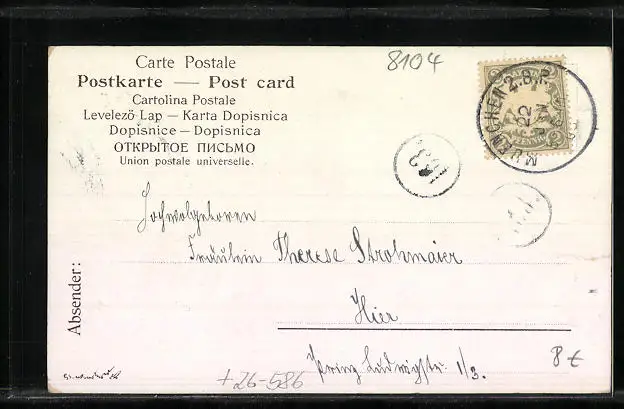 Carte Postale
Postkarte — Post card
Cartolina Postale
Levelező Lap — Karta Dopisnica
Dopisnice — Dopisnica
ОТКРЫТОЕ ПИСЬМО
Union postale universelle.
8104
MUENCHEN 2. B.P.
22
JAN
Hochwolgeboren
Fräulein Therese Strohmaier
Hier
Prinz Ludwigstr. 1/3.
Absender:
+26-586
8 €